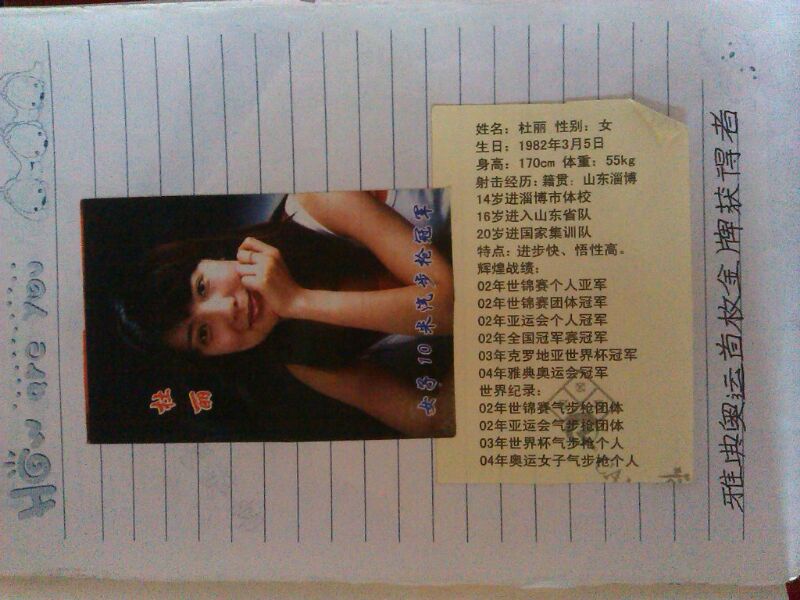 How are you
杜丽
女子10米汽步枪冠军
姓名：杜丽 性别：女
生日：1982年3月5日
身高：170cm 体重：55kg
射击经历：籍贯：山东淄博
14岁进淄博市体校
16岁进入山东省队
20岁进国家集训队
特点：进步快、悟性高。
辉煌战绩：
02年世锦赛个人亚军
02年世锦赛团体冠军
02年亚运会个人冠军
02年全国冠军赛冠军
03年克罗地亚世界杯冠军
04年雅典奥运会冠军
世界纪录：
02年世锦赛气步枪团体
02年亚运会气步枪团体
03年世界杯气步枪个人
04年奥运女子气步枪个人
雅典奥运首枚金牌获得者